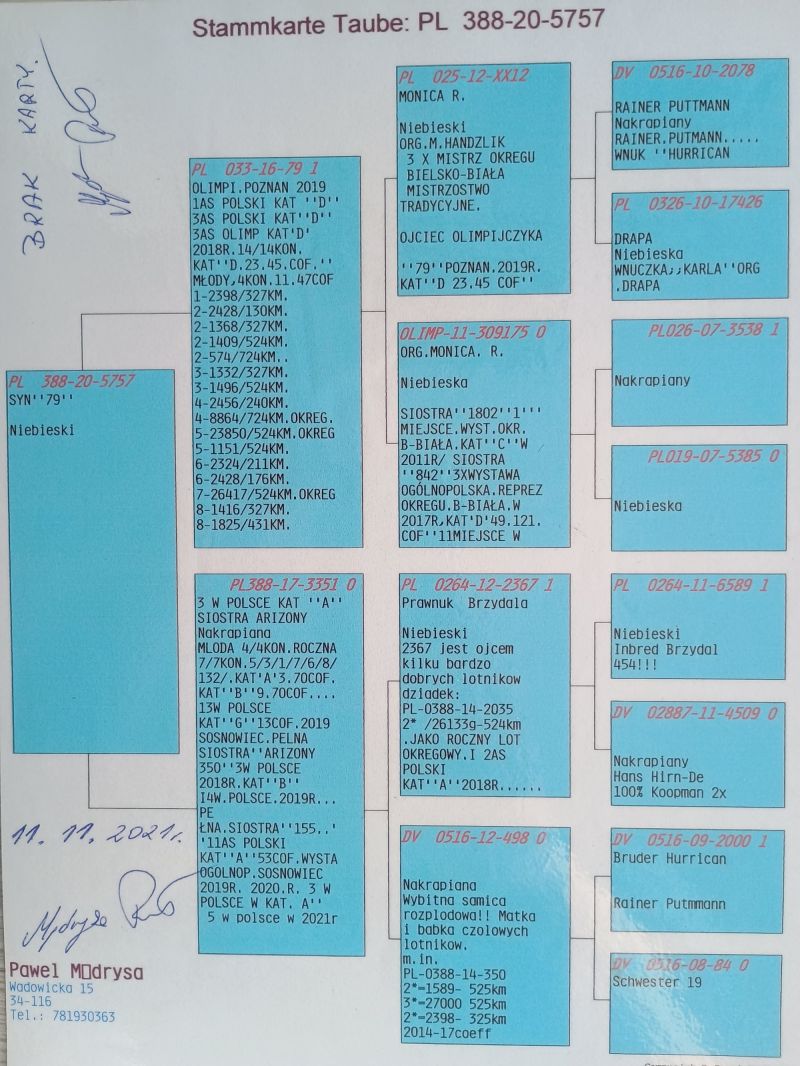 Stammkarte Taube: PL 388-20-5757
BRAK KARTY.
PL 388-20-5757
SYN''79''
Niebieski
PL 033-16-79 1
OLIMPI.POZNAN 2019
1AS POLSKI KAT ''D''
3AS POLSKI KAT''D''
3AS OLIMP KAT'D'
2018R.14/14KON.
KAT''D.23.45.COF.''
MŁODY,4KON.11.47COF
1-2398/327KM.
2-2428/130KM.
2-1368/327KM.
2-1409/524KM.
2-574/724KM..
3-1332/327KM.
3-1496/524KM.
4-2456/240KM.
4-8864/724KM.OKREG.
5-23850/524KM.OKREG
5-1151/524KM.
6-2324/211KM.
6-2428/176KM.
7-26417/524KM.OKREG
8-1416/327KM.
8-1825/431KM.
PL388-17-3351 0
3 W POLSCE KAT ''A''
SIOSTRA ARIZONY
Nakrapiana
MLODA 4/4KON.ROCZNA
7/7KON.5/3/1/7/6/8/
132/.KAT'A'3.70COF.
KAT''B''9.70COF....
13W POLSCE
KAT''G''13COF.2019
SOSNOWIEC.PELNA
SIOSTRA''ARIZONY
350''3W POLSCE
2018R.KAT''B''
I4W.POLSCE.2019R...
PE
ŁNA.SIOSTRA''155..'
'11AS POLSKI
KAT''A''53COF.WYSTA
OGOLNOP.SOSNOWIEC
2019R. 2020.R. 3 W
POLSCE W KAT. A''
5 w polsce w 2021r
PL 025-12-XX12
MONICA R.
Niebieski
ORG.M.HANDZLIK
3 X MISTRZ OKREGU
BIELSKO-BIAŁA
MISTRZOSTWO
TRADYCYJNE.
OJCIEC OLIMPIJCZYKA
''79''POZNAN.2019R.
KAT''D 23,45 COF''
OLIMP-11-309175 0
ORG.MONICA. R.
Niebieska
SIOSTRA''1802''1'''
MIEJSCE.WYST.OKR.
B-BIAŁA.KAT''C''W
2011R/ SIOSTRA
''842''3XWYSTAWA
OGÓLNOPOLSKA.REPREZ
OKREGU.B-BIAŁA.W
2017R,KAT'D'49.121.
COF''11MIEJSCE W
PL 0264-12-2367 1
Prawnuk Brzydala
Niebieski
2367 jest ojcem
kilku bardzo
dobrych lotnikow
dziadek:
PL-0388-14-2035
2* /26133g-524km
.JAKO ROCZNY LOT
OKREGOWY.I 2AS
POLSKI
KAT''A''2018R......
DV 0516-12-498 0
Nakrapiana
Wybitna samica
rozplodowa!! Matka
i babka czolowych
lotnikow.
m.in.
PL-0388-14-350
2*=1589- 525km
3*=27000 525km
2*=2398- 325km
2014-17coeff
DV 0516-10-2078
RAINER PUTTMANN
Nakrapiany
RAINER.PUTMANN.....
WNUK ''HURRICAN
PL 0326-10-17426
DRAPA
Niebieska
WNUCZKA,,KARLA''ORG
.DRAPA
PL026-07-3538 1
Nakrapiany
PL019-07-5385 0
Niebieska
PL 0264-11-6589 1
Niebieski
Inbred Brzydal
454!!!
DV 02887-11-4509 0
Nakrapiany
Hans Hirn-De
100% Koopman 2x
DV 0516-09-2000 1
Bruder Hurrican
Rainer Putmmann
DV 0516-08-84 0
Schwester 19
11. 11. 2021r.
Pawel M□drysa
Wadowicka 15
34-116
Tel.: 781930363